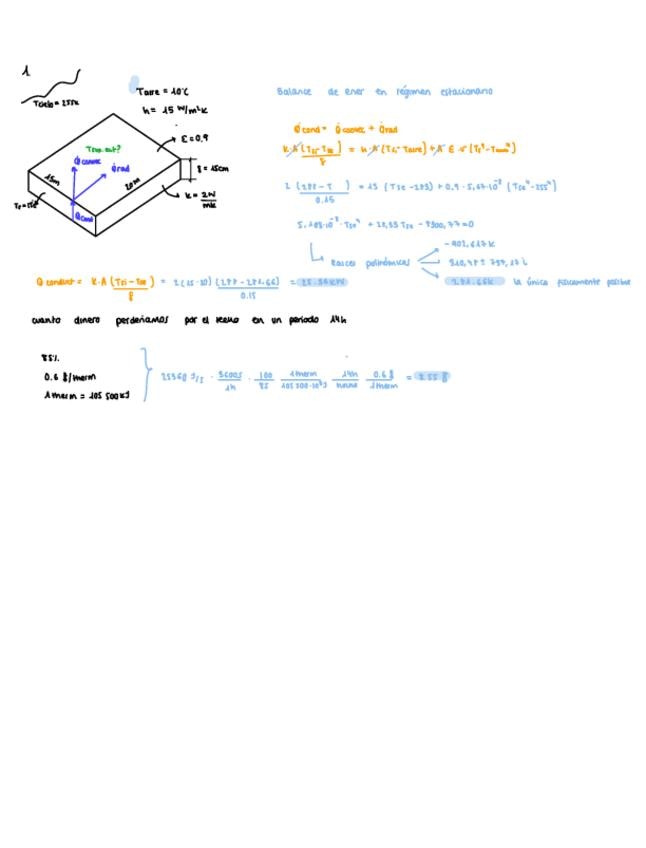 1
Tcielo = 255k
Taire = 10°C
h = 15 W/m²k
ε = 0,9
Tsup. ext?
Q̇convec
Q̇rad
δ = 15cm
15m
20m
k = 2W/mk
Q̇cond
Balance de ener en régimen estacionario
Q̇cond = Q̇convec + Q̇rad
k·A (Tsi - Tse)/δ = h·A (Ts - Taire) + A ε σ (Ts⁴ - Tcielo⁴)
2 (288 - T)/0.15 = 15 (Tse - 283) + 0,9 · 5,67·10⁻⁸ (Tse⁴ - 255⁴)
Raíces polinómicas
281.66k la única físicamente posible
Q̇conduct = k·A (Tsi - Tse)/δ = 2(15·20) (288 - 281.66)/0.15 = 25.36KW
cuanto dinero perderíamos por el techo en un periodo 14h
85%
0.6 $/therm
1 therm = 105 500kJ
25360 J/s · 3600s/1h · 100/85 · 1therm/105 500·10³J · 0.6 $/1therm